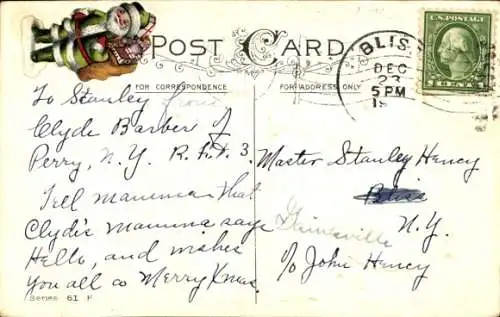 POST CARD
FOR CORRESPONDENCE
FOR ADDRESS ONLY
BLIS
DEC
23
5 PM
19
U.S. POSTAGE
1 CENT 1
To Stanley from
Clyde Barber of
Perry, N.Y. R.F.D. 3.
Tell mamma that
Clyde's Mamma says
Hello, and wishes
You all a Merry Xmas.
Series 61 F
Master Stanley Hency
Bliss
Gainesville
N.Y.
c/o John Hency